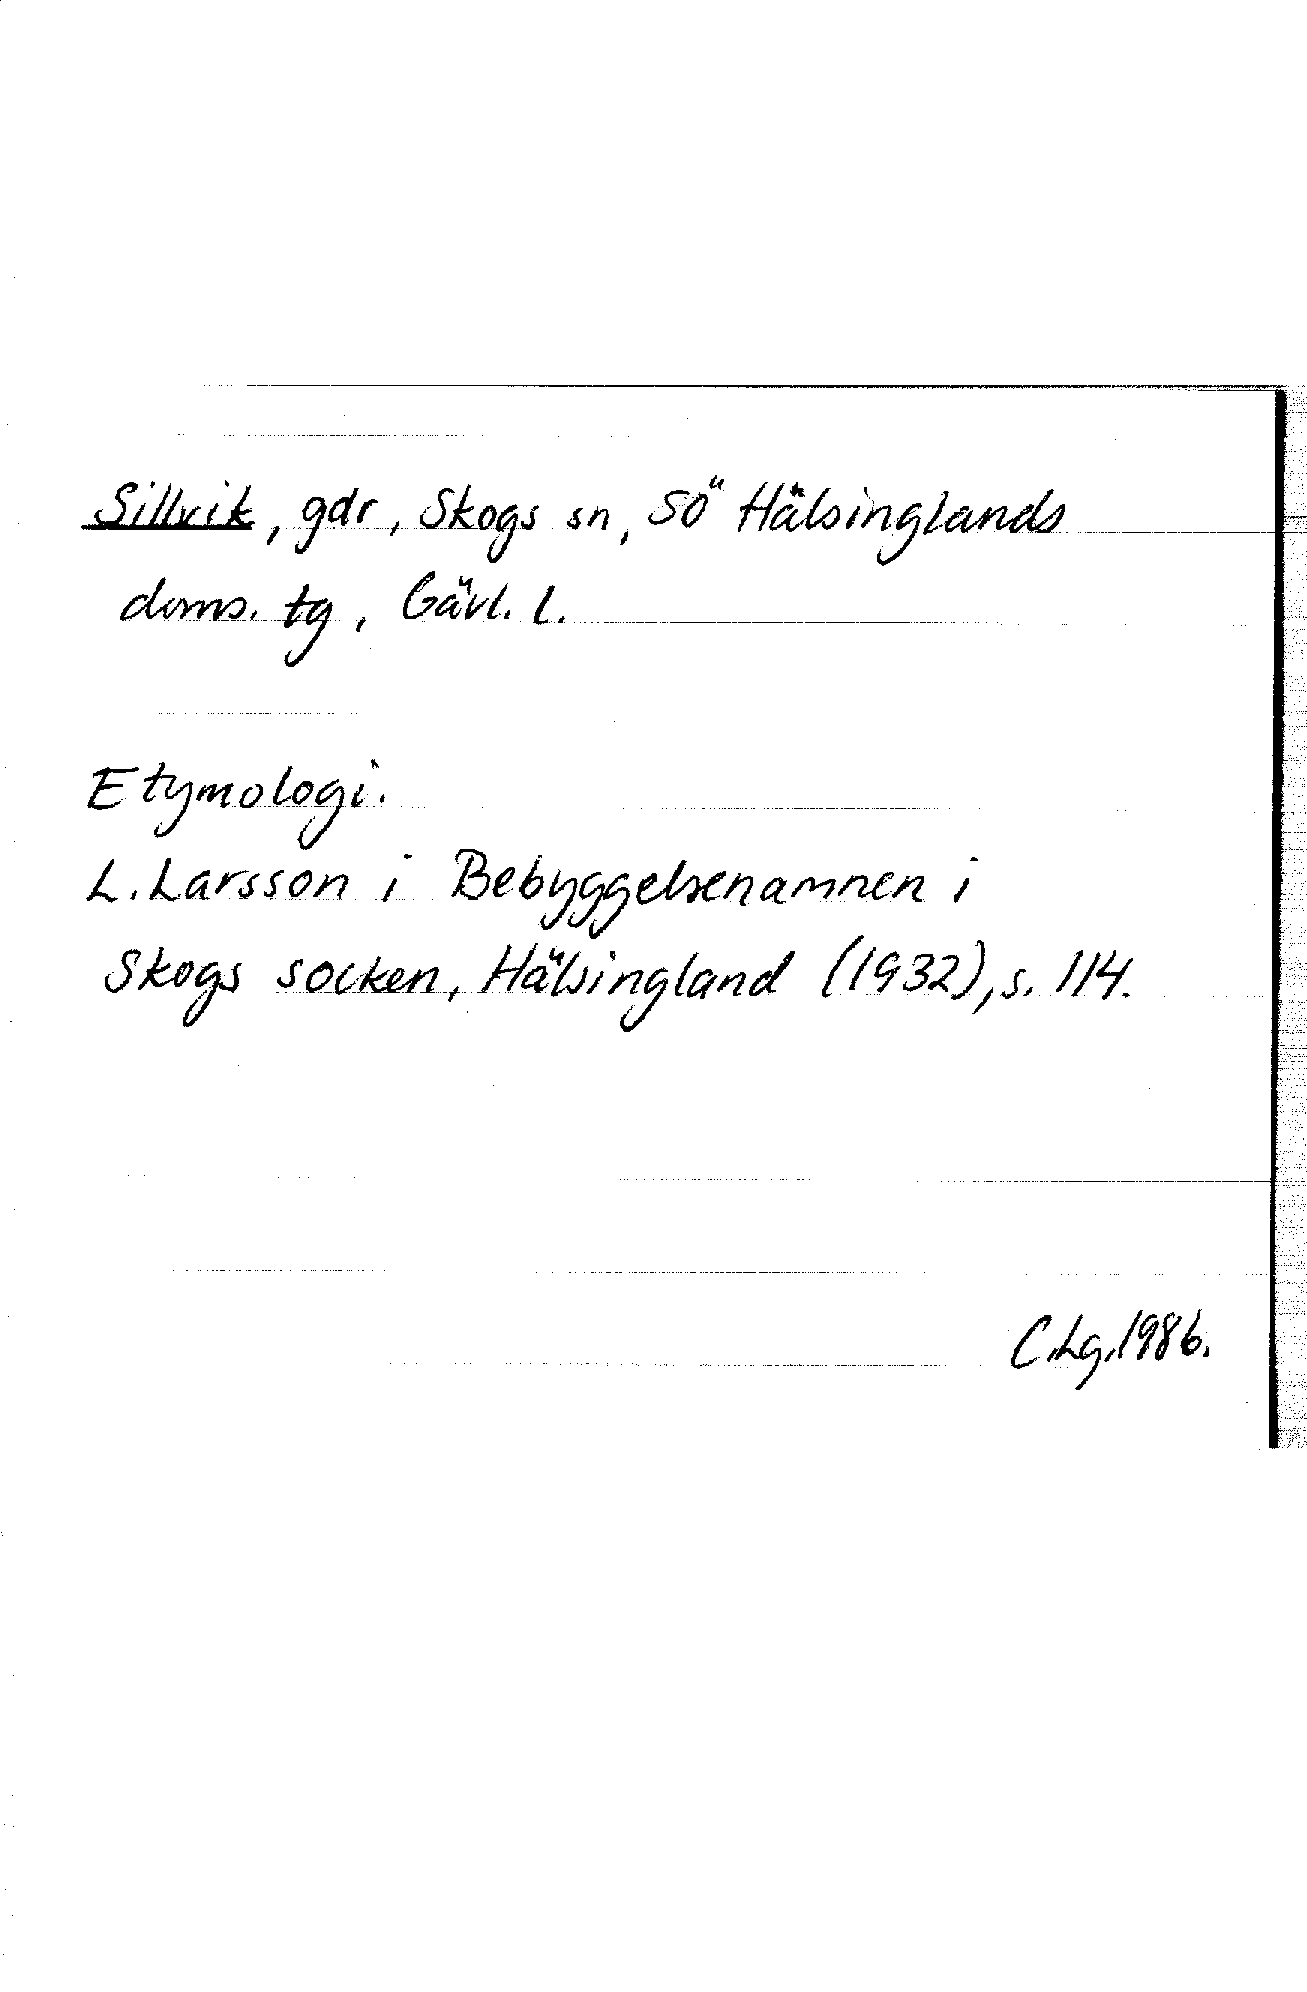 Sillvik, gdr, Skogs sn, SÖ Hälsinglands
doms. tg, Gävl. l.
Etymologi.
L. Larsson i Bebyggelsenamnen i
Skogs socken, Hälsingland (1932), s. 114.
C.Lg.1986.